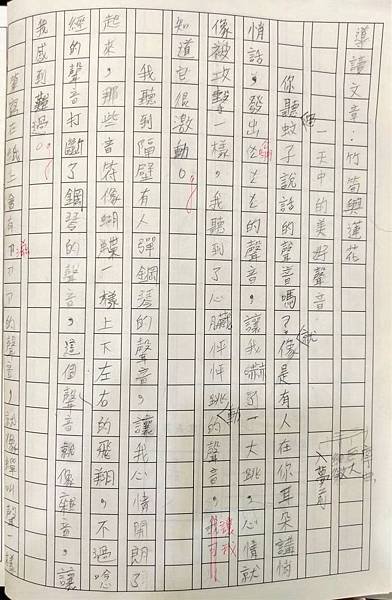 導讀文章:竹筍與蓮花
一天中的美好聲音
你聽蚊子說話的聲音嗎?就像是有人在你耳朵講悄
悄話,發出ㄊㄊ的聲音,讓我嚇了一大跳,心情就
像被攻擊一樣,我聽到了心臟怦怦跳動的聲音,讓我
知道它很激動。
我聽到隔壁有人彈鋼琴的聲音,讓我心情開朗了
起來,那些音符像蝴蝶一樣上下左右的飛翔,不過唸
經的聲音打斷了鋼琴的聲音,這個聲音就像雜音,讓
我感到難過。
在紙上會有
的聲音,就像彈
聲一樣